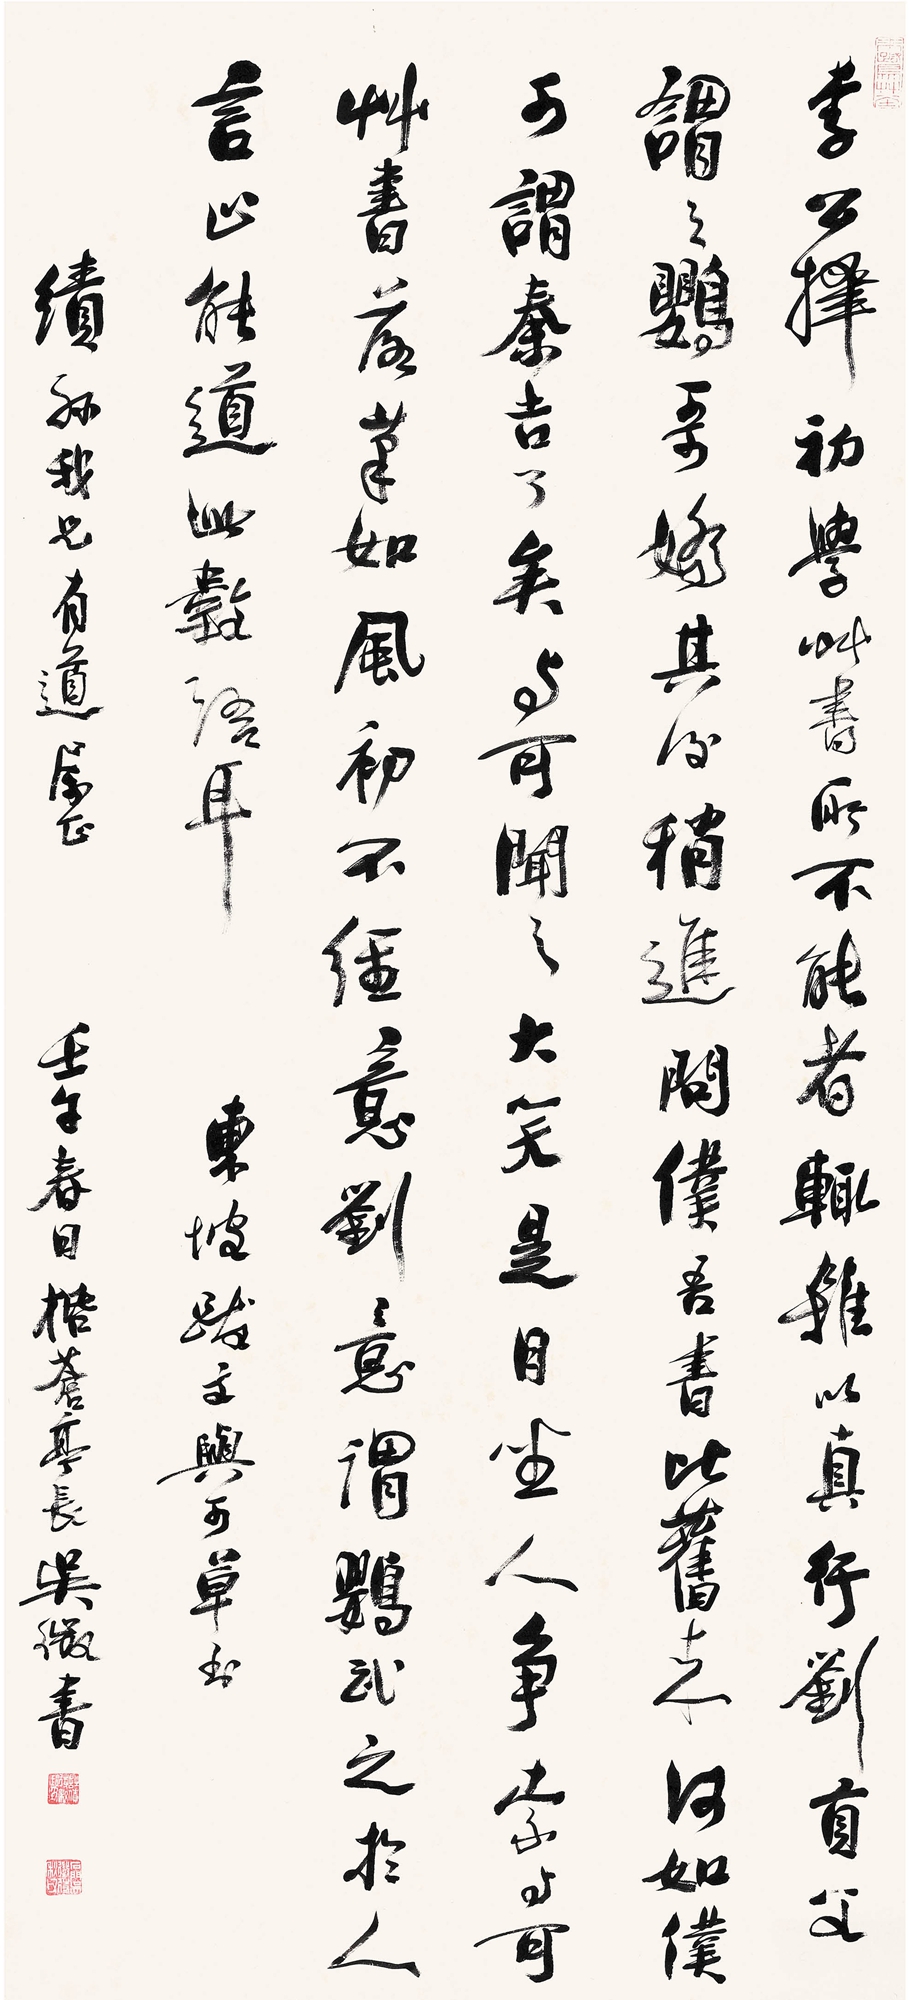 李公擇初學艸書所不能者輒雜以真行劉貢父
謂之鸚哥嬌其後稍進問僕吾書比舊來何如僕
可謂秦吉了矣与可聞之大笑是日坐人爭索与可
艸書落筆如風初不經意劉意謂鸚武之於人
言止能道此數語耳 東坡跋文與可草書
績孫我兄有道屬正 壬午春日栝蒼亭長吳徵書